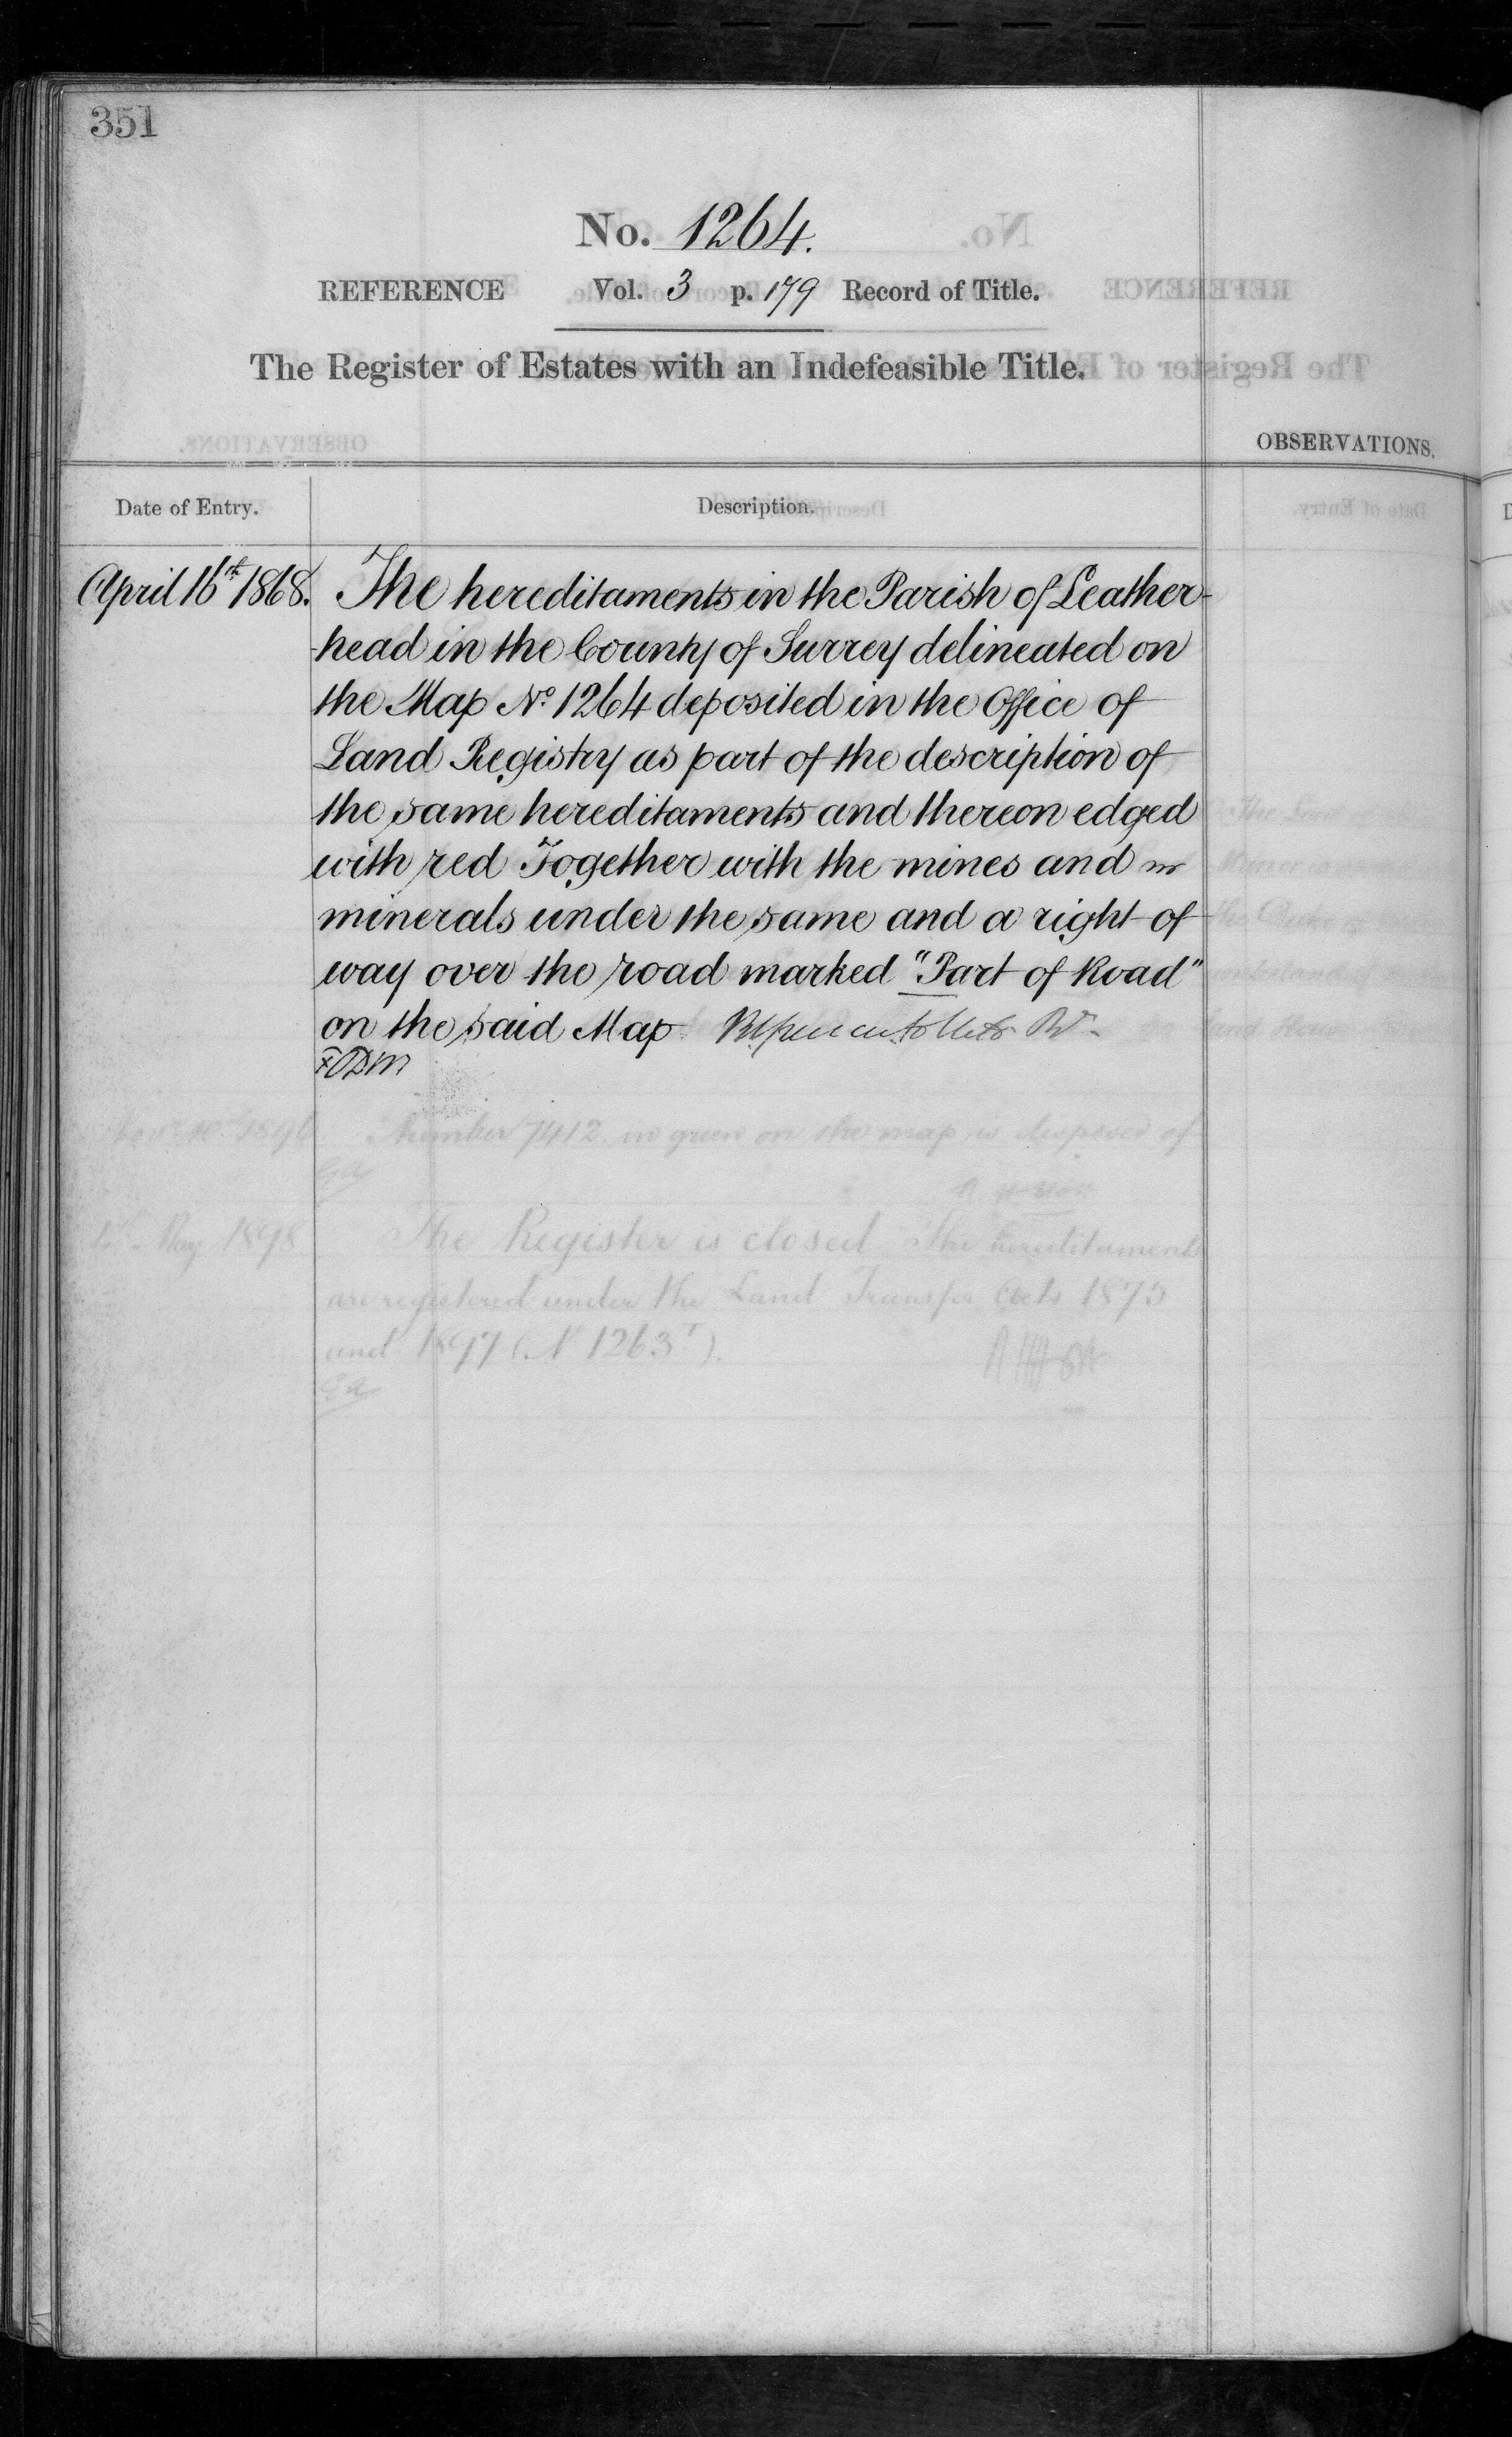 351
No. 1264.
REFERENCE Vol. 3 p. 179 Record of Title.
The Register of Estates with an Indefeasible Title.
OBSERVATIONS.
Date of Entry. Description.
April 16th 1868. The hereditaments in the Parish of Leather-
head in the County of Surrey delineated on
the Map No. 1264 deposited in the Office of
Land Registry as part of the description of
the same hereditaments and thereon edged
with red Together with the mines and
minerals under the same and a right of
way over the road marked "Part of Road"
on the said Map
Number 7412 in green on the map is disposed of
May 1898 The Register is closed The hereditaments
are registered under the Land Transfer Acts 1875
and 1897 (No 1263)